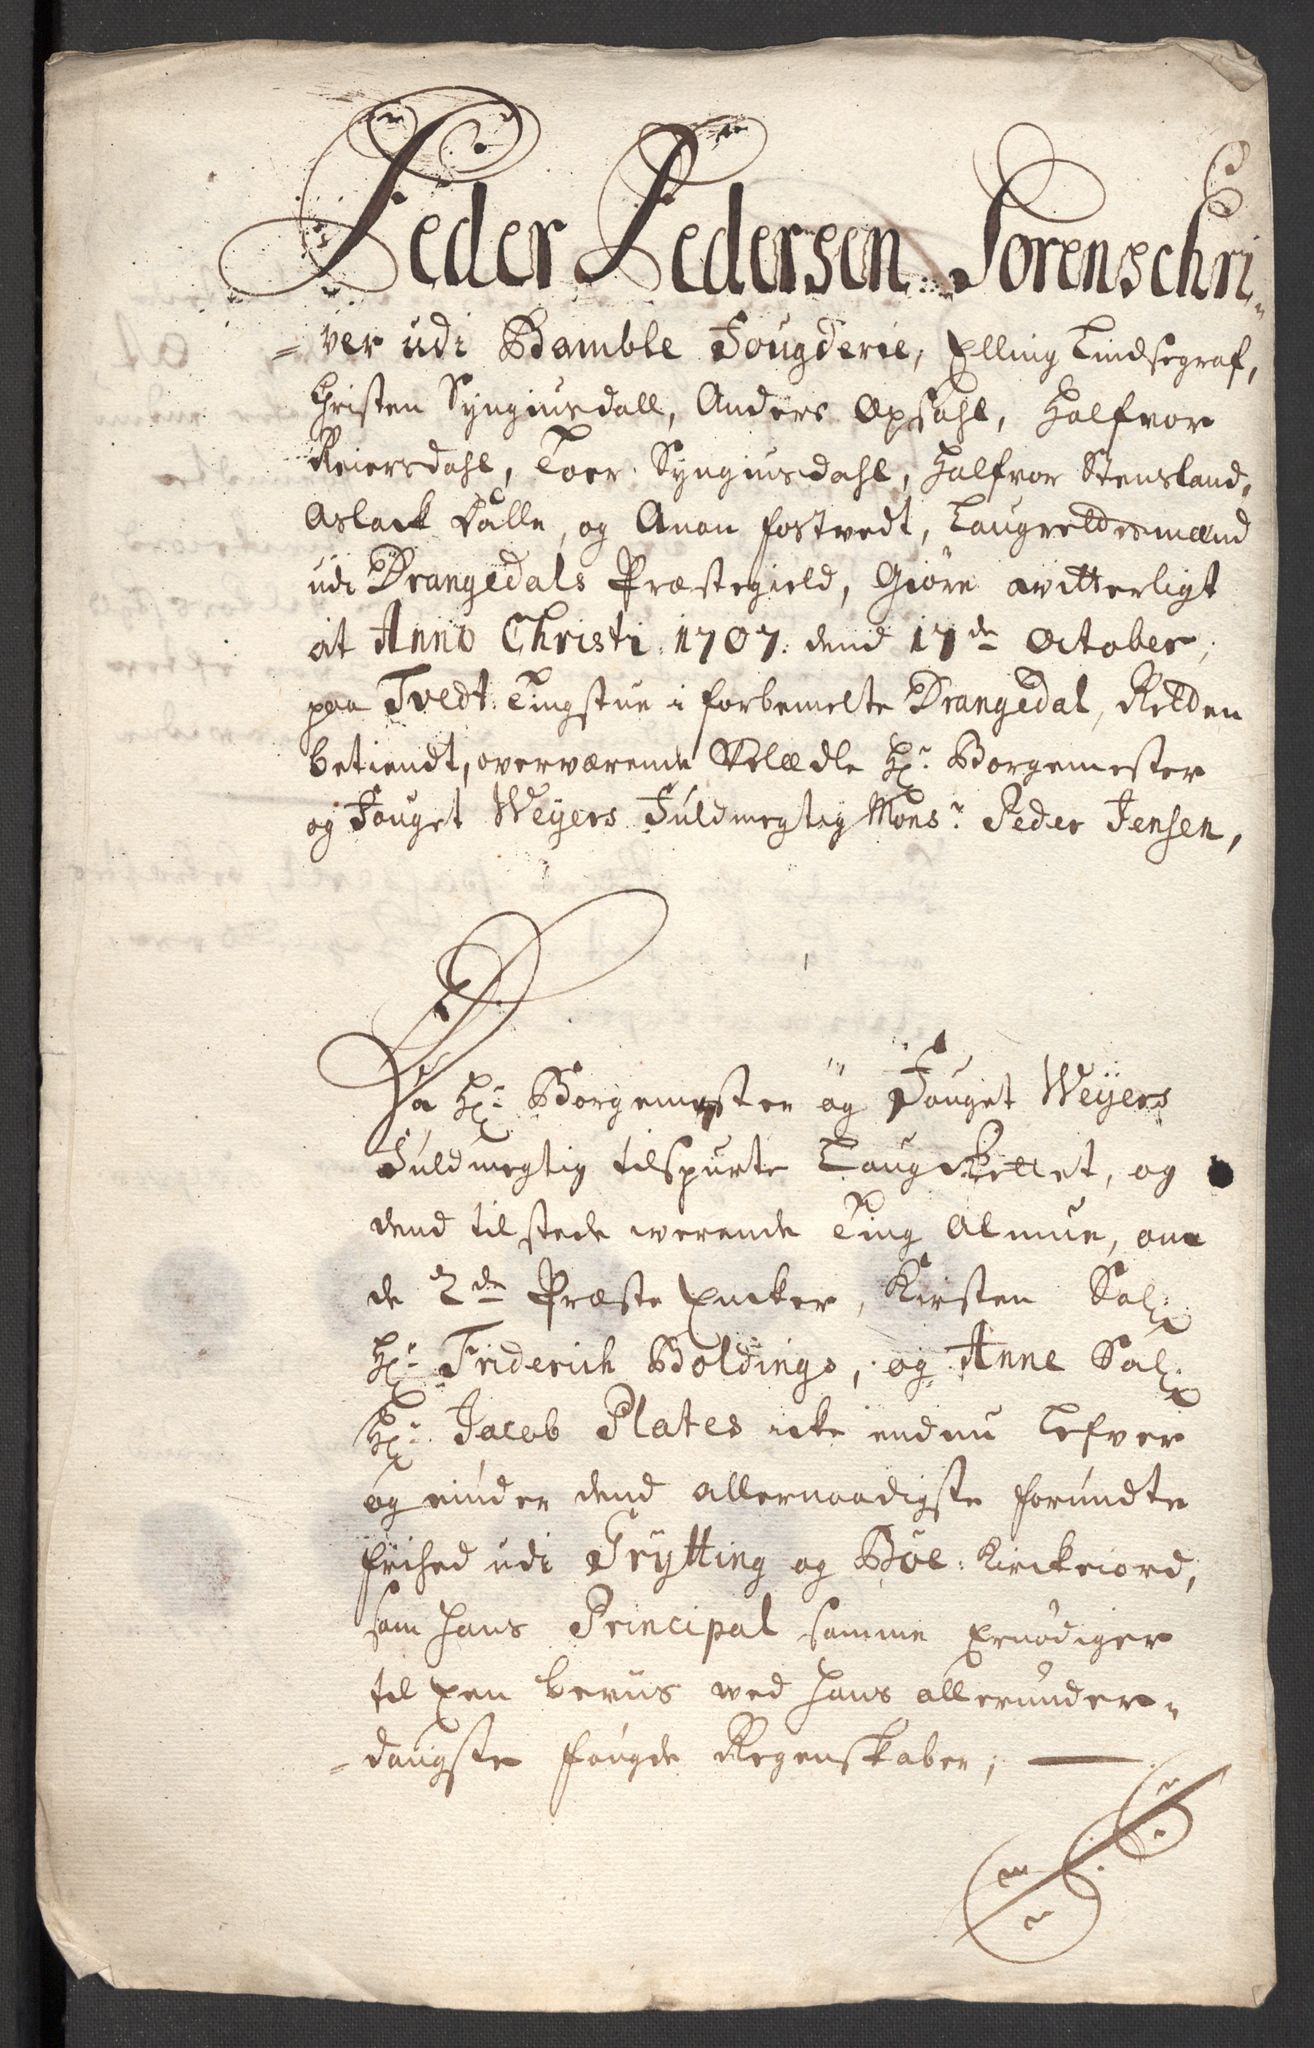 Peder Pedersen Sorenschri-
-ver udi Bamble Fougderie, Elling Lindsegraf,
Christen Syngiusdall, Anders Opsahl, Halfvor
Reiersdahl, Toer Syngiusdahl, Halfvor Stensland,
Aslack Dalle, og Anon Fostvedt, Laugrettesmænd
udi Drangedals Præstegield, Giöre witterligt
at Anno Christi 1707. dend 17de October,
paa Tvedt Tingstue i forbemelte Drangedal, Retten
betiendt, overværende Velædle Hr. Borgemester
og Fouget Weyers Fuldmegtig Monsr. Peder Jensen,
Da Hr. Borgemester og Fouget Weyers
Fuldmegtig tilspurte LaugRettet, og
dend tilstede werende Ting Almue, om
de 2de Præste Encker, Kirsten Sal:
Hr. Friderich Boldings, og Anne Sal:
Hr. Jacob Plates icke endnu lefver
og niuder dend allernaadigste forundte
frihed udi Grytting og Böe Kirckeiord,
som hans Principal samme Ernödiger
til Een beviis wed hans allerunder-
-danigste fougde Regenskaber;